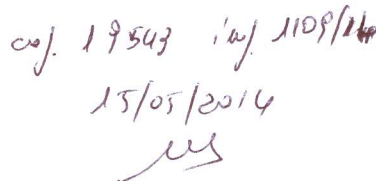 cof. 19543 inf. 1109/14
15/05/2014